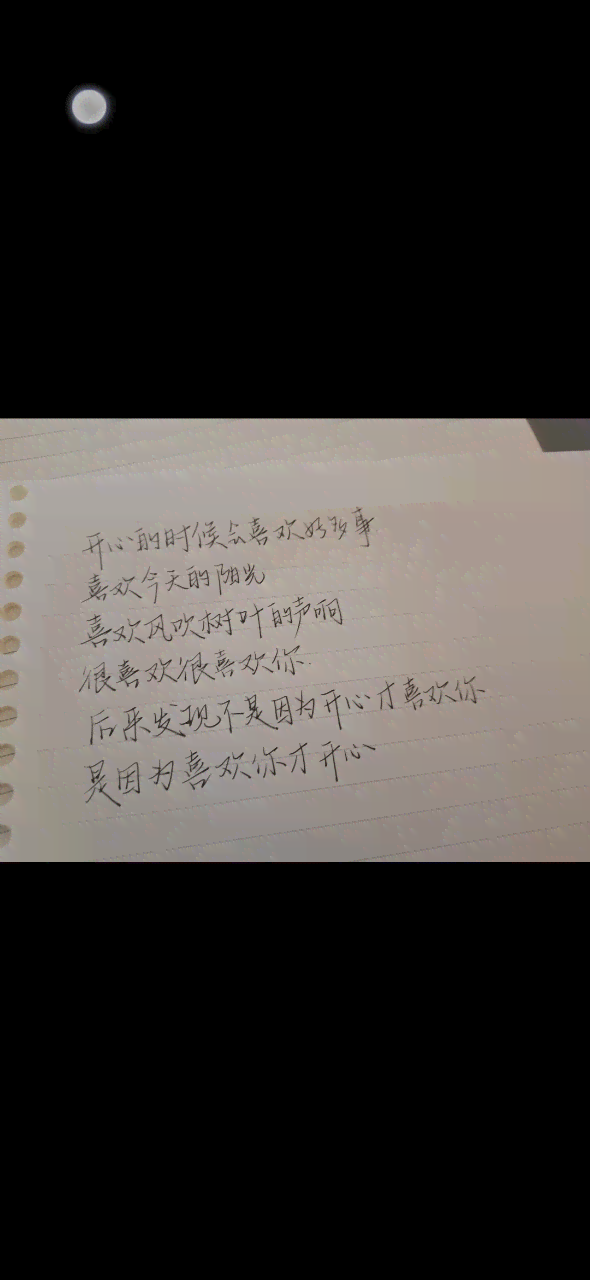 开心的时候会喜欢好多事
喜欢今天的阳光
喜欢风吹树叶的声响
很喜欢很喜欢你.
后来发现不是因为开心才喜欢你
是因为喜欢你才开心